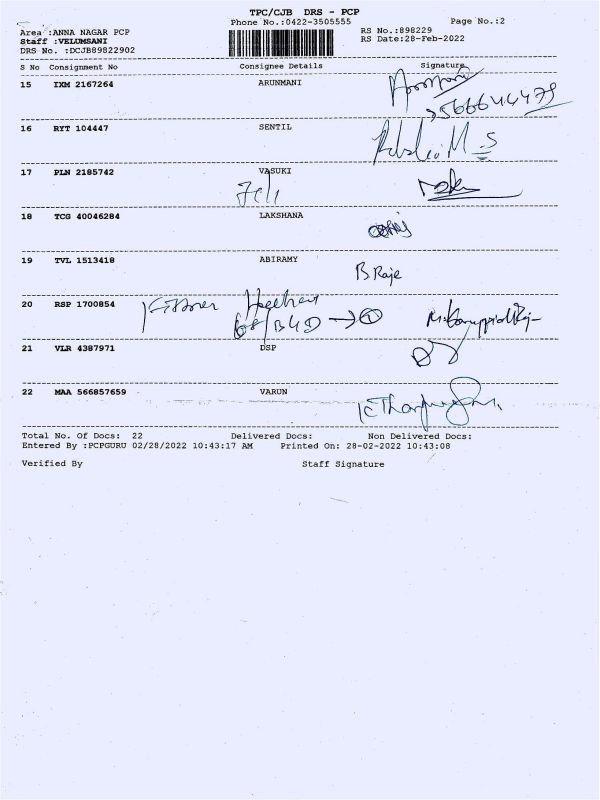 TPC/CJB DRS - PCP
Phone No.:0422-3505555 Page No.:2
Area :ANNA NAGAR PCP RS No.:898229
Staff :VELUMSANI RS Date:28-Feb-2022
DRS No. :DCJB89822902
S No Consignment No Consignee Details Signature
15 IXM 2167264 ARUNMANI
16 RYT 104447 SENTIL
17 PLN 2185742 VASUKI
18 TCG 40046284 LAKSHANA
19 TVL 1513418 ABIRAMY
B Raje
20 RSP 1700854
21 VLR 4387971 DSP
22 MAA 566857659 VARUN
Total No. Of Docs: 22 Delivered Docs: Non Delivered Docs:
Entered By :PCPGURU 02/28/2022 10:43:17 AM Printed On: 28-02-2022 10:43:08
Verified By Staff Signature